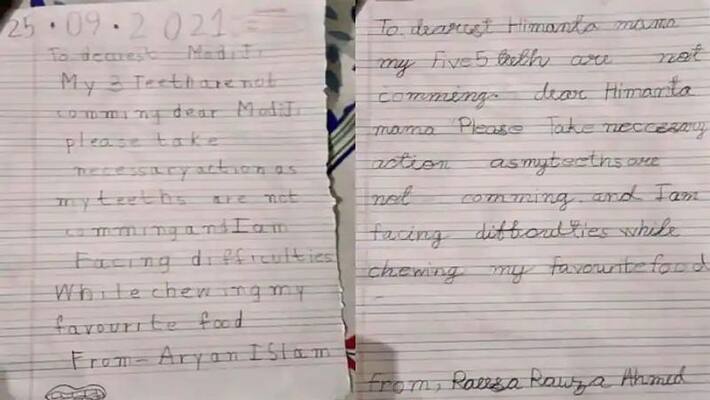 25.09.2021
To dearest ModiJi
My 3 Teeth are not
comming dear ModiJi
please take
necessary action as
my teeths are not
comming and I am
Facing difficulties
While chewing my
favourite food
From - Aryan ISlam
To dearest Himanta mama
my five 5 teeth are not
comming. dear Himanta
mama Please Take neccezary
action as my teeths are
not comming. and I am
facing difficulties while
chewing my favourite food
from, Raeesa Rawza Ahmed